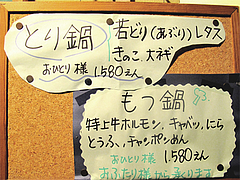 とり鍋
若どり(あぶり)レタス
きのこ、大ネギ
おひとり様 1,580えん
もつ鍋
特上牛ホルモン、キャベツ、にら
とうふ、チャンポンめん
おひとり様 1,580えん
おふたり様から承ります